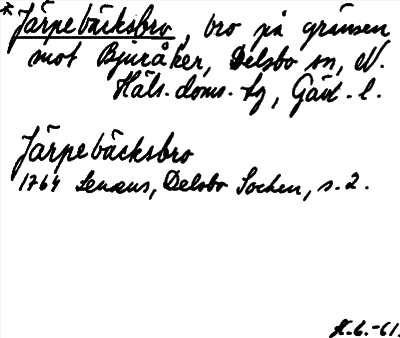 *Järpebäcksbro, bro på gränsen
mot Bjuråker, Delsbo sn, N.
Häls. doms. tg, Gävl. l.
Järpebäcksbro
1764 Lenæus, Delsbo Sochen, s. 2.
H.G.-61.